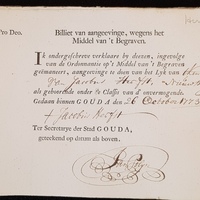 Pro Deo.
Billiet van aangeevinge, wegens het
Middel van 't Begraven.
Ik ondergeschreve verklaare by deezen, ingevolge
van de Ordonnantie op 't Middel van 't Begraven
geëmaneert, aangevinge te doen van het Lyk van
van Jacobus
als gehoorende onder de Classis van d' onvermogende.
Gedaan binnen GOUDA, den 26 October 177
Jacobus
Ter Secretarye der Stad GOUDA,
geteekend op datum als boven.